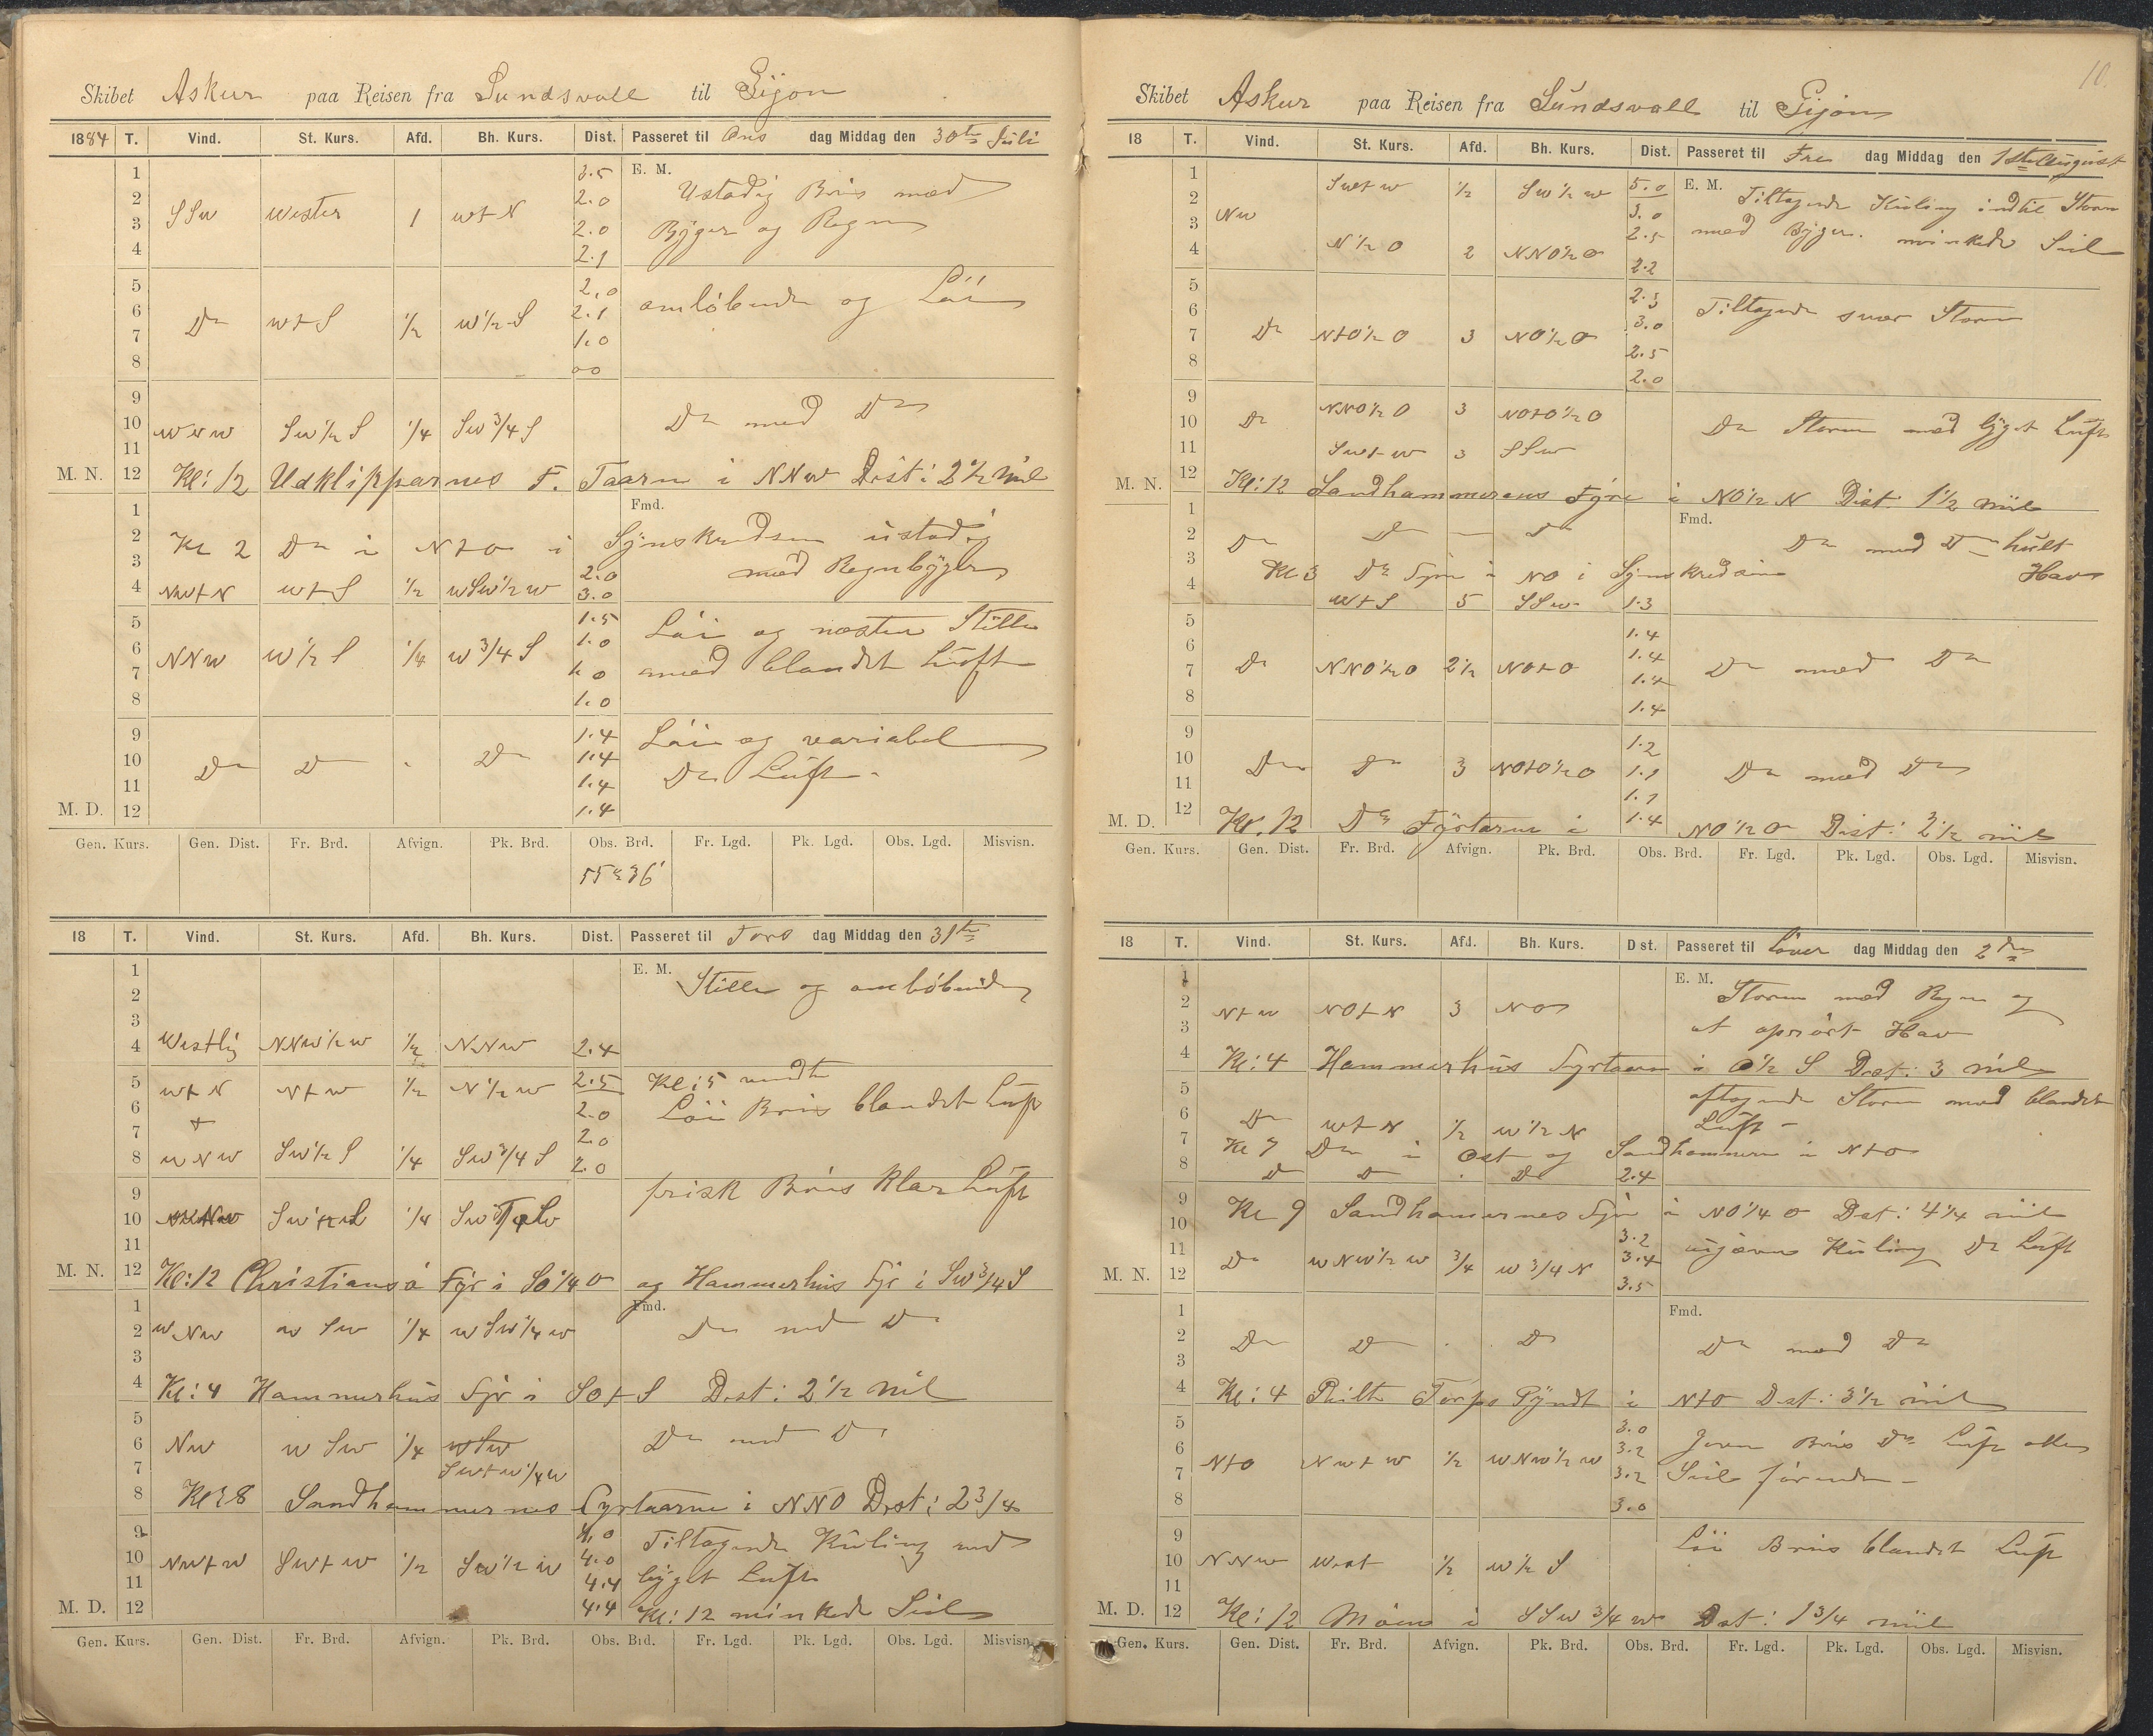 Skibet Askur paa Reisen fra Sundsvall til Gijon
1884 T. Vind. St. Kurs. Afd. Bh. Kurs. Dist. Passeret til Ons dag Middag den 30te Juli
1 3.5 E. M.
2 2.0 Ustadig Bris med
3 SSw wester 1 w+N 2.0 Byger og Regn
4 2.1
5 2.0 omløbende og Löi
6 Do w+S 1/2 w1/2S 2.1
7 1.0
8 00
9
10 wNw Sw1/2S 1/4 Sw3/4S Do med Do
11
M. N. 12 Kl: 12 Udklipparnes F. Taarn i NNw Dist: 2 1/2 Mil
1 Fmd.
2 Kl 2 Do i N+O i Synskredsen ustadig
3 2.0 med Regnbyger
4 Nw+N w+S 1/2 wSw1/2w 3.0
5 1.5 Löi og næsten Stille
6 NNw w1/2S 1/4 w3/4S 1.0 med blandet Luft
7 1.0
8 1.0
9 1.4 Löi og variabel
10 Do Do Do 1.4 Do Luft
11 1.4
M. D. 12 1.4
Gen. Kurs. Gen. Dist. Fr. Brd. Afvign. Pk. Brd. Obs. Brd. Fr. Lgd. Pk. Lgd. Obs. Lgd. Misvisn.
55°36'
18 T. Vind. St. Kurs. Afd. Bh. Kurs. Dist. Passeret til Tors dag Middag den 31te
1 E. M. Stille og omløbende
2
3
4 Westlig NNw1/2w 1/2 NNw 2.4
5 w+N N+w 1/2 N1/2w 2.5 Kl: 5 vendte
6 + 2.0 Löi Bris blandet Luft
7 2.0
8 wNw Sw1/2S 1/4 Sw3/4S 2.0
9 frisk Bris klar Luft
10 1/4
11
M. N. 12 Kl: 12 Christiansö Fyr i SO1/4O og Hammerhus Fyr i Sw3/4S
1 Fmd.
2 wNw wSw 1/4 wSw1/4w Do med Do
3
4 Kl: 4 Hammerhus Fyr i SO+S Dist: 2 1/2 Mil
5
6 Nw wSw 1/4 wSw Do med Do
7 Sw+w1/4w
8 Kl: 8 Sandhammernes Fyrtaarn i NNO Dist: 2 3/4
9 4.0 Tiltagende Kuling med
10 Nw+w Sw+w 1/2 Sw1/2w 4.0 byget Luft
11 4.4
M. D. 12 4.4 Kl: 12 minkede Seil
Gen. Kurs. Gen. Dist. Fr. Brd. Afvign. Pk. Brd. Obs. Brd. Fr. Lgd. Pk. Lgd. Obs. Lgd. Misvisn.
10.
Skibet Askur paa Reisen fra Sundsvall til Gijon
18 T. Vind. St. Kurs. Afd. Bh. Kurs. Dist. Passeret til Fre dag Middag den 1ste August
1 Sw+w 1/2 Sw1/2w 5.0 E. M. Tiltagende Kuling indtil Storm
2 Nw 3.0 med Byger. minkede Seil
3 2.5
4 N1/2O 2 NNO1/2O 2.2
5 2.3 Tiltagende svær Storm
6 3.0
7 Do N+O1/2O 3 NO1/2O 2.5
8 2.0
9 NNO1/2O 3 NO+O1/2O
10 Do Do Storm med byget Luft
11 Sw+w 3 SSw
M. N. 12 Kl: 12 Sandhammerens Fyr i NO1/2N Dist: 1 1/2 Miil
1 Fmd.
2 Do Do Do Do med Do hult
3 Kl 3 Do Fyr i NO i Synskredsen Hav
4 w+S 5 SSw 1.3
5 1.4
6 1.4
7 Do NNO1/2O 2 1/2 NO+O 1.4 Do med Do
8 1.4
9 1.2
10 Do Do 3 NO+O1/2O 1.1 Do med Do
11 1.1
M. D. 12 Kl. 12 Do Fyrtarn i 1.4 NO1/2O Dist: 3 1/2 miil
Gen. Kurs. Gen. Dist. Fr. Brd. Afvign. Pk. Brd. Obs. Brd. Fr. Lgd. Pk. Lgd. Obs. Lgd. Misvisn.
18 T. Vind. St. Kurs. Afd. Bh. Kurs. Dist. Passeret til Löver dag Middag den 2den
1 E. M. Storm med Regn og
2 N+w NO+N 3 NO
3 et oprört Hav
4 Kl: 4 Hammerhus Fyrtaarn i O1/2S Dist: 3 mil
5 aftagende Storm med blandet
6 Do w+N 1/2 w1/2N Luft
7 Kl 7 Do i Ost og Sandhammern i N+O
8 Do Do Do 2.4
9 Kl 9 Sandhamernes Fyr i NO1/4O Dist: 4 1/4 mil
10 3.2 ujævne Kuling Do Luft
11 Do wNw1/2w 3/4 w3/4N 3.4
M. N. 12 3.5
1 Fmd.
2 Do Do Do Do med Do
3
4 Kl: 4 Torps Pyndt i N+O Dist: 3 1/2 mil
5 3.0 Jevn Bris Do Luft alle
6 N+O Nw+w 1/2 wNw1/2w 3.2
7 3.2 Seil förende
8 3.0
9 Löi Bris blandet Luft
10 NNw West 1/2 w1/2S
11
M. D. 12 Kl: 12 Möens i SSw3/4w Dist: 1 3/4 miil
Gen. Kurs. Gen. Dist. Fr. Brd. Afvign. Pk. Brd. Obs. Brd. Fr. Lgd. Pk. Lgd. Obs. Lgd. Misvisn.